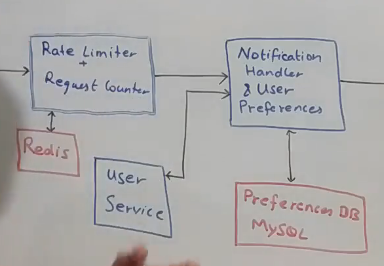 Rate Limiter
+
Request Counter
Notification
Handler
& User
Preferences
Redis
User
Service
Preferences DB
MySQL